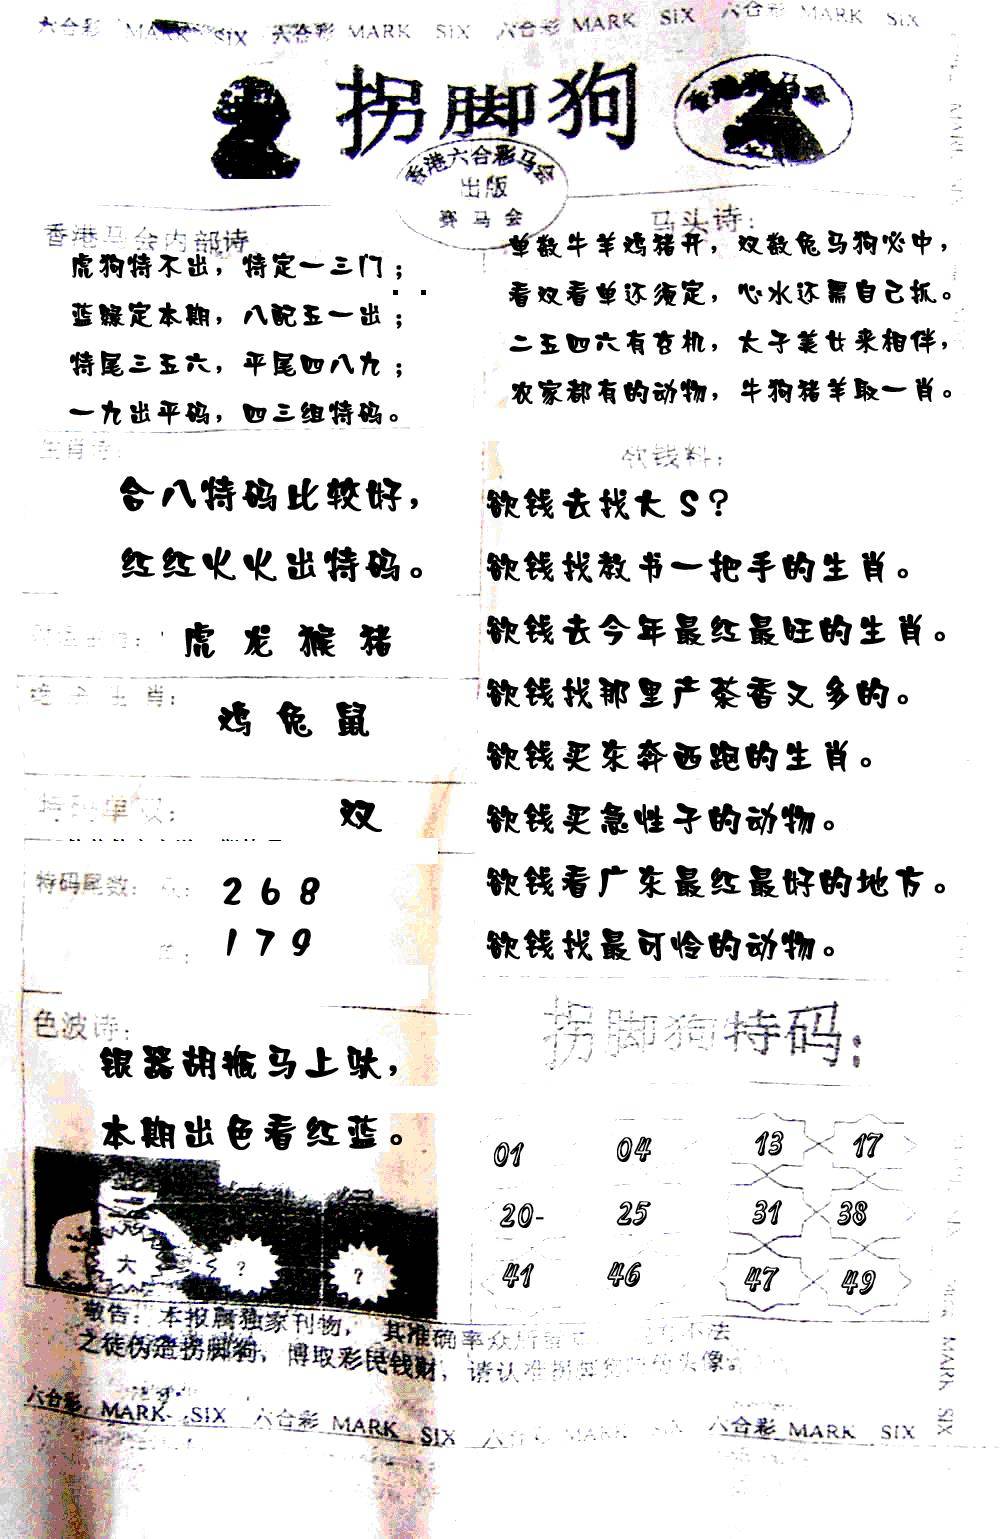 六合彩 MARK SIX 六合彩 MARK SIX 六合彩 MARK SIX 六合彩 MARK SIX
拐脚狗
香港六合彩马会
出版
赛马会
香港马会内部诗
虎狗特不出，特定一三门；
蓝绿定本期，八配五一出；
特尾三五六，平尾四八九；
一九出平码，四三组特码。
马头诗：
单数牛羊鸡猪开，双数兔马狗必中，
看双看单还须定，心水还需自己抓。
二五四六有玄机，太子美女来相伴，
农家都有的动物，牛狗猪羊取一肖。
生肖诗：
合八特码比较好，
红红火火出特码。
虎龙猴猪
绝杀生肖：
鸡兔鼠
特码单双：
双
特码尾数：
268
179
色波诗：
银器胡瓶马上驮，
本期出色看红蓝。
大
?
?
欲钱料：
欲钱去找大S?
欲钱找教书一把手的生肖。
欲钱去今年最红最旺的生肖。
欲钱找那里产茶香又多的。
欲钱买东奔西跑的生肖。
欲钱买急性子的动物。
欲钱看广东最红最好的地方。
欲钱找最可怜的动物。
拐脚狗特码：
01 04 13 17
20- 25 31 38
41 46 47 49
敬告：本报属独家刊物，其准确率众所 不法
之徒伪造拐脚狗，博取彩民钱财，请认准拐脚狗 头像。
六合彩 MARK SIX 六合彩 MARK SIX 六合彩 MARK SIX 六合彩 MARK SIX
MARK SIX